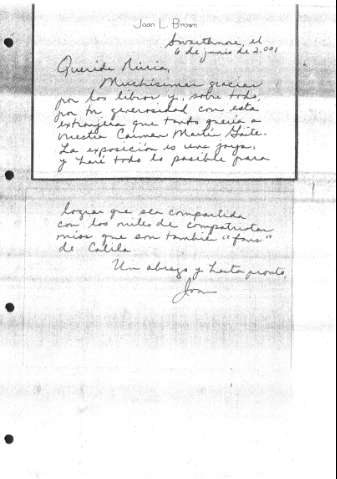 Joan L. Brown
Swarthmore, el
6 de junio de 2.001
Querida
Muchísimas gracias
por los libros y, sobre todo,
por tu generosidad con esta
extranjera que tanto quería a
nuestra Carmen Martín Gaite.
La exposición es una joya,
y haré todo lo posible para
lograr que sea compartida
con los miles de compatriotas
míos que son también "fans"
de Calila.
Un abrazo y hasta pronto,
Joan